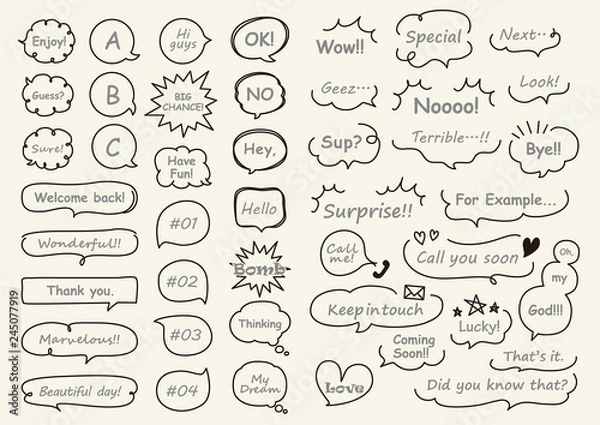 Enjoy!
A
Hi
guys
OK!
Wow!!
Special
Next‥
Guess?
B
BIG
CHANCE!
NO
Geez…
Noooo!
Look!
Sure!
C
Have
Fun!
Hey,
Sup?
Terrible…!!
Bye!!
Welcome back!
#01
Hello
Surprise!!
For Example…
Wonderful!!
Bomb
Call
me!
Call you soon
Oh,
my
God!!!
Thank you.
#02
Keep in touch
Lucky!
Marvelous!!
#03
Thinking
Coming
Soon!!
That's it.
Beautiful day!
#04
My
Dream
Love
Did you know that?
Adobe Stock | #245077919